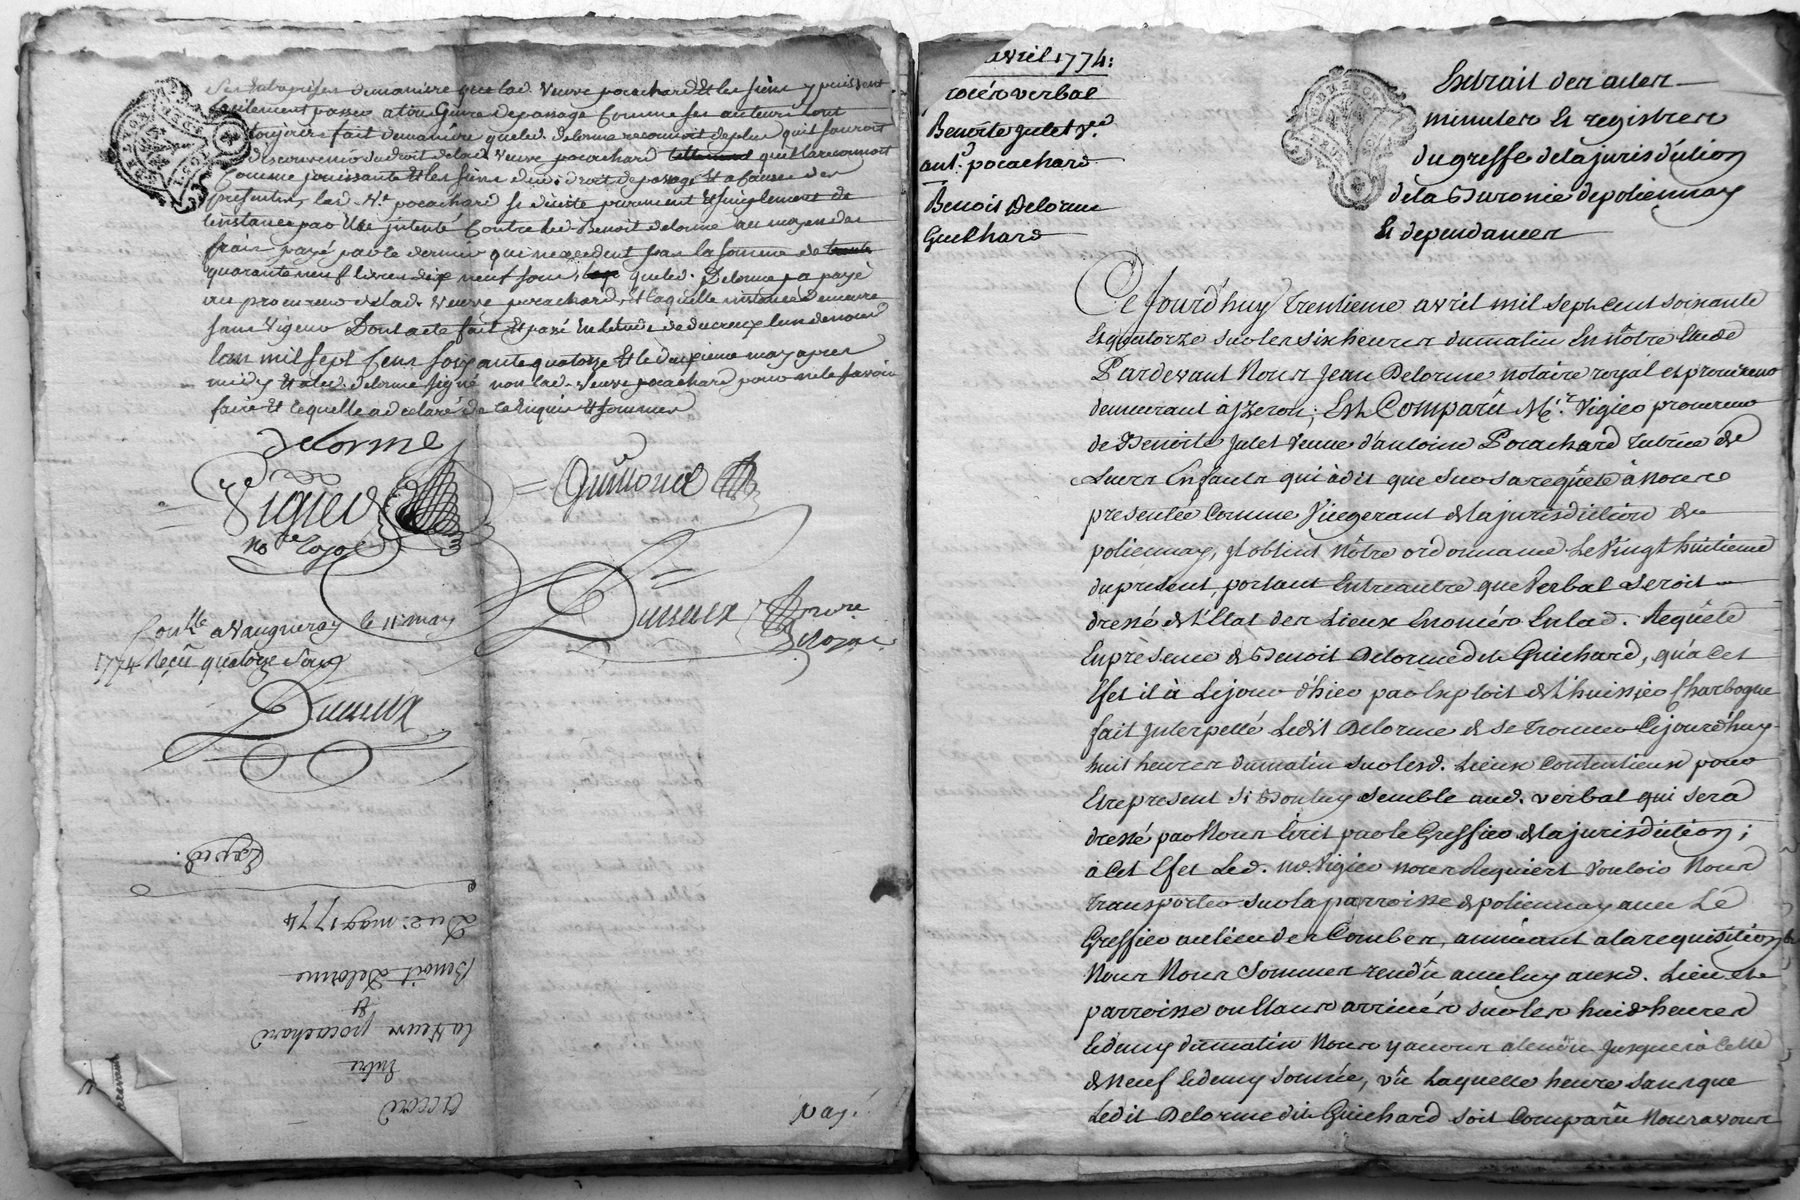 ses entreprises de maniere que lad. veuve pocachard et les siens y puissent
facilement passer a tou genre de passage comme ses auteurs l'ont
toujours fait de maniere que led. delorme reconnoit de plus
du droit de lad. veuve pocachard qu'il la reconnoit
comme jouissante et les siens dud. droit de passage et a cause des
presentes, lad. Ve. pocachard se desiste purement et simplement de
l'instance par elle intenté contre led. Benoit delorme au moyen des
frais payé par le dernier qui n'excedent pas la somme de
quarante neuf livres dix neuf sous, que led. Delorme a payé
au procureur de lad. veuve pocachard, et laquelle instance demeure
sans vigeur Dont acte fait et passé en l'étude de ducreux l'un de nous
l'an mil sept cens soixante quatorze et le deuxieme may apres
midy et a led. delorme signé non lad. veuve pocachard pour ne le savoir
faire et lequelle a declaré de ce enquis et sommés
delorme
Vigier
no.re royal
Ducreux
notaire
royal
Conllé a Vaugneray le 11 may
1774 Reçû quatorze sous
Ducreux
Du 2e may 1774
Benoit Delorme
&
la Veuve pocachard
Entre
accord
avril 1774:
rocés verbal
Benoite Julet Ve. d'
ant. pocachard
Benoit Delorme
Guichard
Extrait des actes
minutes et registres
du greffe de la jurisdiction
de la Baronie de poliennay
Et dependances
Ce Jourd'huy trentieme avril mil sept cent soixante
et quatorze sur les six heures du matin en nôtre etude
Pardevant Nous Jean Delorme notaire royal et procureur
demeurant à Izeron; Est Comparû Me. Vigier procureur
de Benoite Julet Veuve d'antoine Pocachard tutrice de
Leurs Enfants qui à dit que sur sa requête à Nous
presentée comme Vicegerant de la jurisdiction de
poliennay, il obtint nôtre ordonnance le Vingt huitieme
du present, portant entre autre que Verbal Seroit
dressé de l'Etat des Lieux Enoncés en lad. Requête
En présence de Benoit Delorme dit Guichard, qu'à cet
Efet il à le jour d'hier par Exploit de l'huissier Charbogne
fait Interpellé Ledit Delorme de se trouver Cejourd'huy
huit heures du matin sur lesd. Lieux contentieux pour
Etre present si Bon luy semble aud. verbal qui sera
dressé par Nous Ecrit par le Greffier de la jurisdiction;
à cet Efet Led. me. Vigier nous Requiert vouloir Nous
transporter sur la parroisse de poliennay avec Le
Greffier au lieu des Combes, annuant a la requisition
Nous Nous sommes rendû avec luy auxd. Lieu et
parroisse ou Etans arrivés sur les huit heures
Et demy du matin Nous y avons atendû jusques à celle
de neuf Et demy sonnée, vû Laquelle heure sans que
Ledit Delorme dit Guichard soit Comparû Nous avons